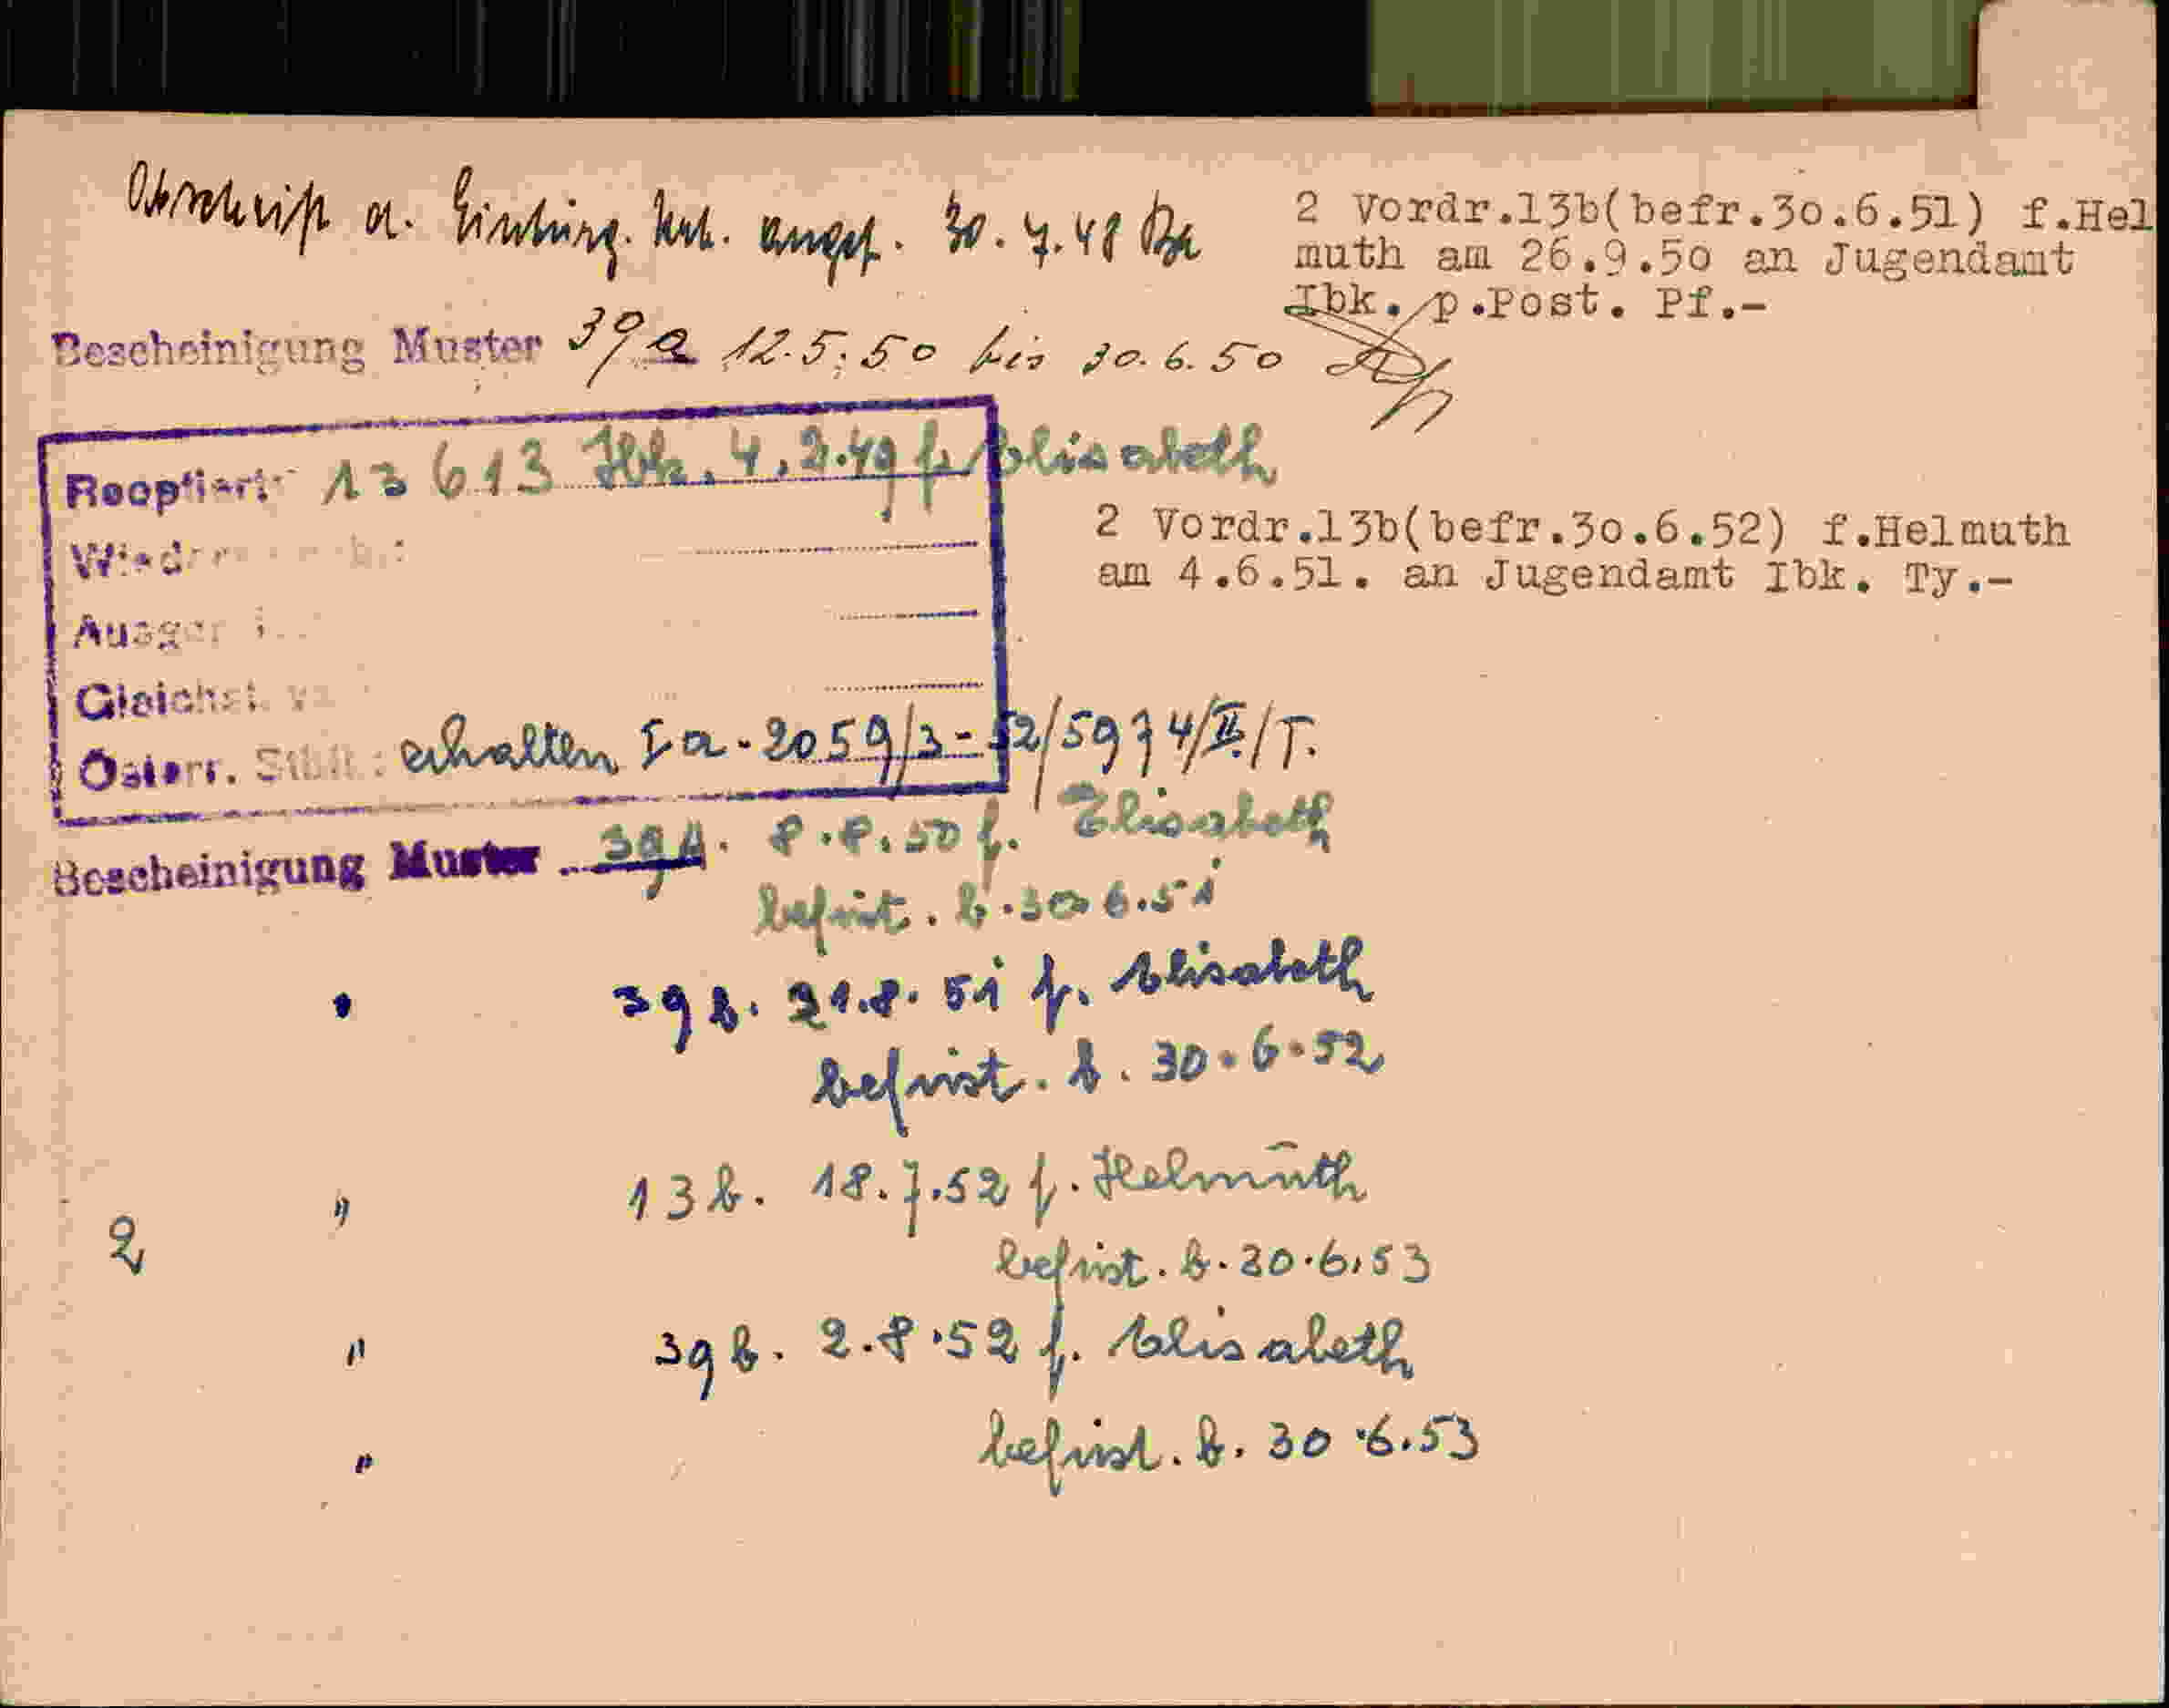 Abschrift d. Einbürg. Urk. angef. 30.7.48
2 Vordr.13b(befr.30.6.51) f.Hel
muth am 26.9.50 an Jugendamt
Ibk. p.Post. Pf.-
Bescheinigung Muster 39a 12.5.50 bis 30.6.50
Reoptiert: 13613 Ibk. 4.2.49 f. Elisabeth
2 Vordr.13b(befr.30.6.52) f.Helmuth
am 4.6.51. an Jugendamt Ibk. Ty.-
Gleichst.
Österr. Stbft.: erhalten Ia-2059/3-52/5974/II/T.
Bescheinigung Muster 39 8.8.50 f. Elisabeth
befrist. b. 30.6.51
" 39 b. 21.8.51 f. Elisabeth
befrist. b. 30.6.52
2 " 13 b. 18.7.52 f. Helmuth
befrist. b. 30.6.53
" 39 b. 2.8.52 f. Elisabeth
" befrist. b. 30.6.53